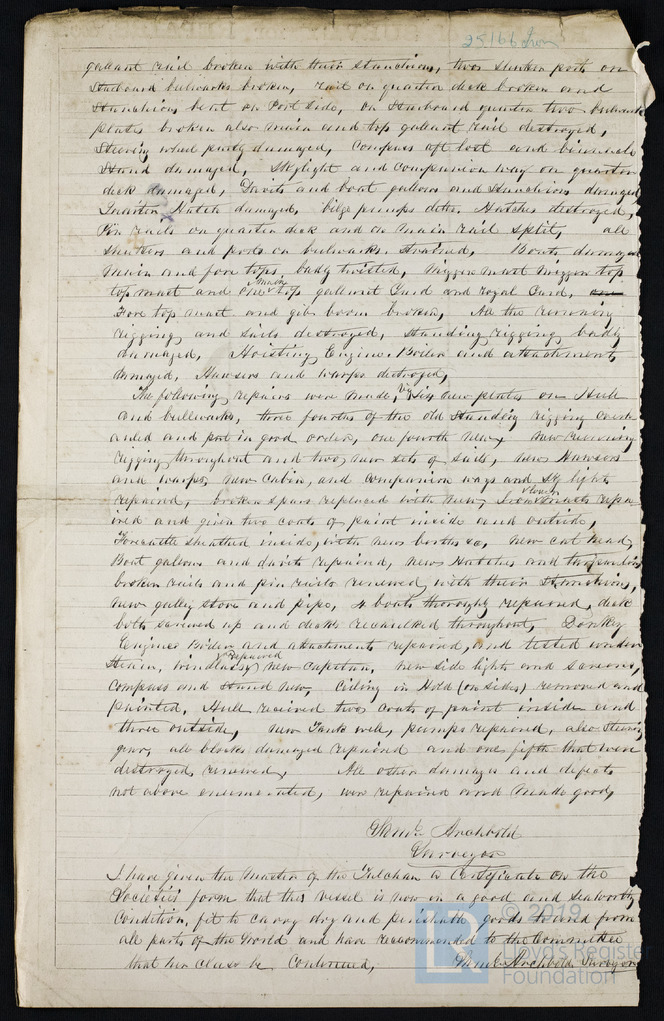 25166 Iron
gallant rail broken with their stanchions, two sunken ports on
Starboard bulwarks broken, rail on quarter deck broken and
Stanchions bent on Port side, on Starboard quarter two bulwark
plates broken also main and top gallant rail destroyed,
Steering wheel partly damaged, Compass aft lost and binnacle
Stand damaged, Skylight and Companion way on quarter
deck damaged, Davits and boat gallows and Stanchions damaged
Quarter Hatch damaged, bilge pumps ditto, Hatches destroyed,
Pin rails on quarter deck and on Main rail split, all
and ports on bulwarks strained, Boats damaged
Main and fore tops, badly twisted, Mizzen mast Mizzen top
top mast and one top gallant Yard and royal Yard,
Fore top mast and gib boom broken, All the running
rigging and sails destroyed, standing rigging badly
damaged, Hoisting Engine Boiler and attachments
damaged, Hawsers and warps destroyed,
The following repairs were made, viz Six new plates on Hull
and bullwarks, three fourths of the old Standing rigging overh
auled and put in good order, one fourth new, new running
rigging throughout and two new sets of sails, new Hawsers
and warps, new Cabin, and companion ways and Sky lights
repaired, broken spars replaced with new, Iron lower masts repa
ired and given two coats of paint inside and outside,
Forecastle sheathed inside, with new berths &c, new cat head,
Boat gallows and davits repaired, new Hatches and
broken rails and pin rails renewed, with their Stanchions,
new galley stove and pipe, 4 boats thoroughly repaired, deck
bolts screwed up and decks recaulked throughout, Donkey
Engine Boiler and attachments repaired, and tested under
Steam, windlass repaired new capstan, new side lights and screens,
Compass and Stand new, Ceiling in Hold (on sides) removed and
painted, Hull received two coats of paint inside and
three outside, new Tank well, pumps repaired, also Steering
gear, all blocks damaged repaired and one fifth that were
destroyed, renewed, All other damages and defects
not above enumerated, were repaired and made good,
Saml Archbold
Surveyor
I have given the Master of the Tulchan a Certificate on the
Societies form that this vessel is now in a good and seaworthy
Condition, fit to carry dry and perishable goods to and from
all parts of the World and have reccommended to the Committee
that her Class be Continued, Saml Archbold Surveyor
© 2019
LR
Lloyd's Register
Foundation